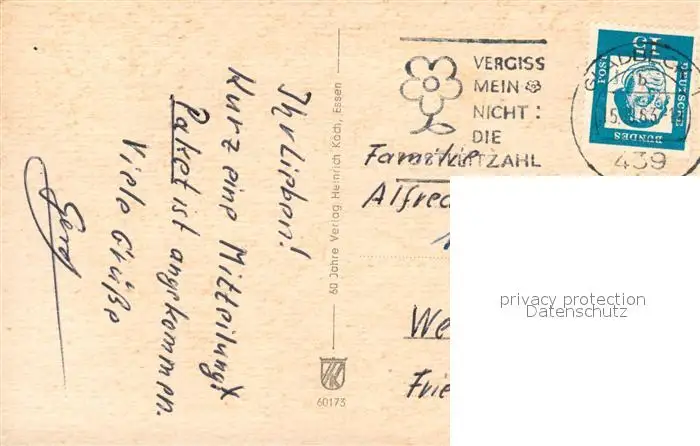 Ihr Lieben!
Kurz eine Mitteilung!
Paket ist angekommen.
Viele Grüße
Gerd
60 Jahre Verlag Heinrich Koch, Essen
60173
VERGISS
MEIN
NICHT:
DIE
TZAHL
15
DEUTSCHE
BUNDES
POST
b
63
439
Familie
Alfred
We
Frie
privacy protection
Datenschutz